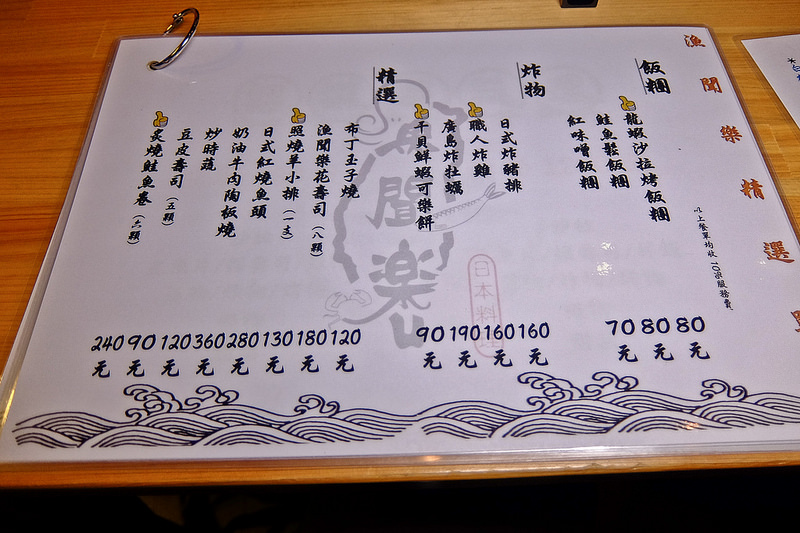 漁聞樂精選
以上餐單均收10%服務費
飯糰
龍蝦沙拉烤飯糰 80元
鮭魚鬆飯糰 80元
紅味噌飯糰 70元
炸物
日式炸豬排 160元
職人炸雞 160元
廣島炸牡蠣 190元
干貝鮮蝦可樂餅 90元
精選
布丁玉子燒 120元
漁聞樂花壽司(八顆) 180元
照燒羊小排(一支) 130元
日式紅燒魚頭 280元
奶油牛肉陶板燒 360元
炒時蔬 120元
豆皮壽司(五顆) 90元
炙燒鮭魚卷(六顆) 240元
聞樂
日本料理